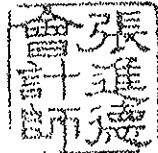 張進德
會計師